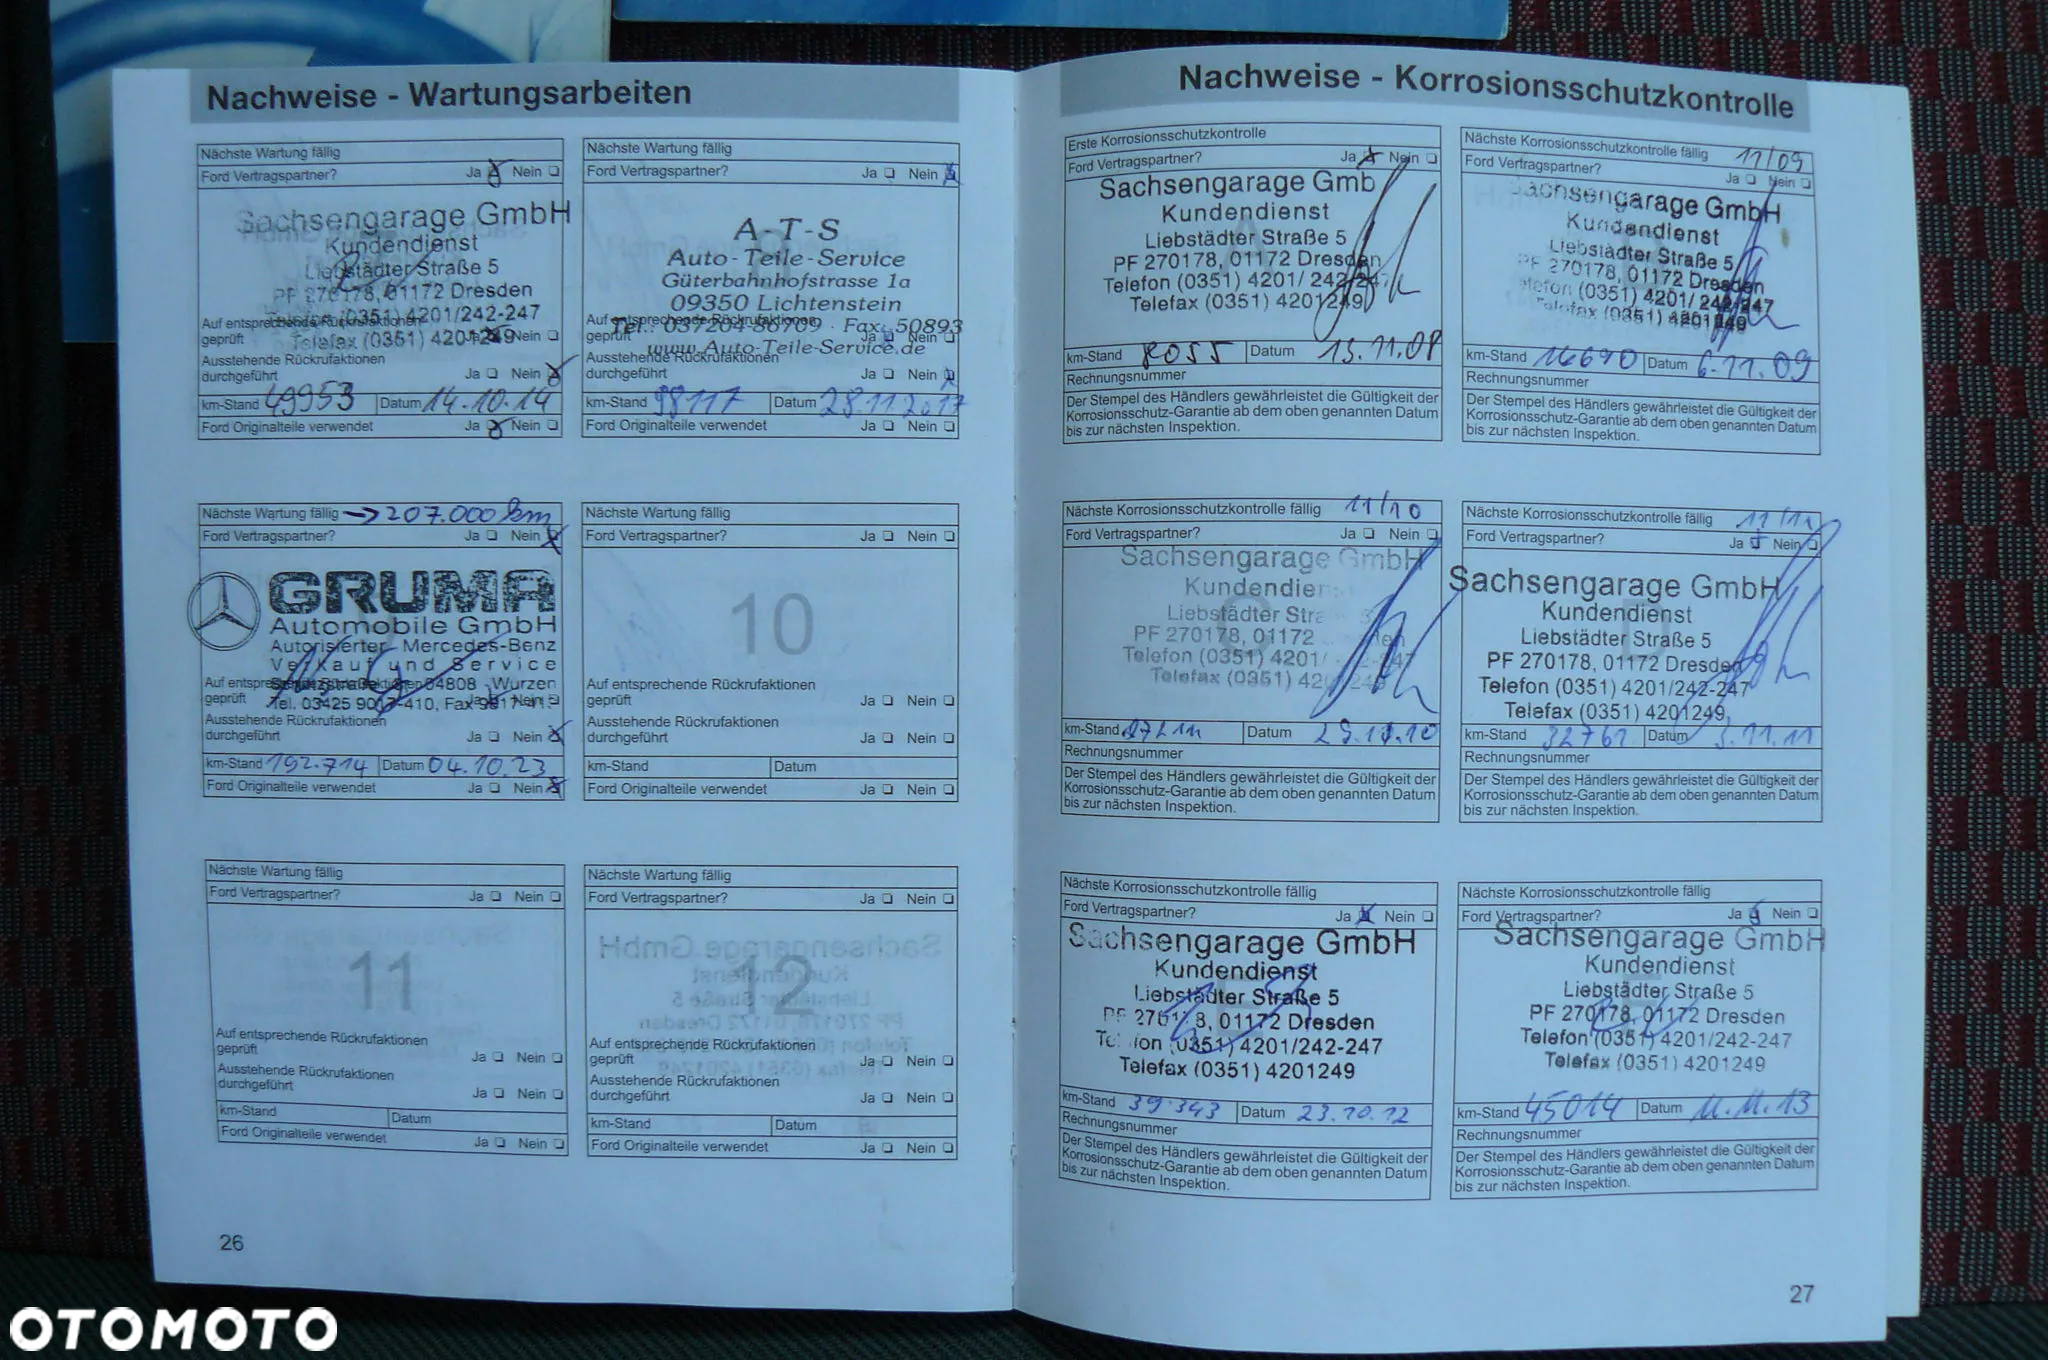 Nachweise - Wartungsarbeiten
Nächste Wartung fällig
Ford Vertragspartner? Ja Nein
Sachsengarage GmbH
Kundendienst
Liebstädter Straße 5
PF 270178, 01172 Dresden
Telefon (0351) 4201/242-247
Telefax (0351) 4201249
Auf entsprechende Rückrufaktionen
geprüft Ja Nein
Ausstehende Rückrufaktionen
durchgeführt Ja Nein
km-Stand 49953 Datum 14.10.14
Ford Originalteile verwendet Ja Nein
Nächste Wartung fällig
Ford Vertragspartner? Ja Nein
A-T-S
Auto-Teile-Service
Güterbahnhofstrasse 1a
09350 Lichtenstein
Tel.: 037204-86709 · Fax: 50893
www.Auto-Teile-Service.de
Auf entsprechende Rückrufaktionen
geprüft Ja Nein
Ausstehende Rückrufaktionen
durchgeführt Ja Nein
km-Stand 98117 Datum 28.11.2017
Ford Originalteile verwendet Ja Nein
Nächste Wartung fällig → 207.000 km
Ford Vertragspartner? Ja Nein
GRUMA
Automobile GmbH
Autorisierter Mercedes-Benz
Verkauf und Service
04808 Wurzen
Auf entsprechende Rückrufaktionen
geprüft Ja Nein
Ausstehende Rückrufaktionen
durchgeführt Ja Nein
km-Stand 192.714 Datum 04.10.23
Ford Originalteile verwendet Ja Nein
Nächste Wartung fällig
Ford Vertragspartner? Ja Nein
10
Auf entsprechende Rückrufaktionen
geprüft Ja Nein
Ausstehende Rückrufaktionen
durchgeführt Ja Nein
km-Stand Datum
Ford Originalteile verwendet Ja Nein
Nächste Wartung fällig
Ford Vertragspartner? Ja Nein
11
Auf entsprechende Rückrufaktionen
geprüft Ja Nein
Ausstehende Rückrufaktionen
durchgeführt Ja Nein
km-Stand Datum
Ford Originalteile verwendet Ja Nein
Nächste Wartung fällig
Ford Vertragspartner? Ja Nein
12
Auf entsprechende Rückrufaktionen
geprüft Ja Nein
Ausstehende Rückrufaktionen
durchgeführt Ja Nein
km-Stand Datum
Ford Originalteile verwendet Ja Nein
26
Nachweise - Korrosionsschutzkontrolle
Erste Korrosionsschutzkontrolle
Ford Vertragspartner? Ja Nein
Sachsengarage Gmb
Kundendienst
Liebstädter Straße 5
PF 270178, 01172 Dresden
Telefon (0351) 4201/242-247
Telefax (0351) 4201249
km-Stand 8055 Datum 13.11.08
Rechnungsnummer
Der Stempel des Händlers gewährleistet die Gültigkeit der
Korrosionsschutz-Garantie ab dem oben genannten Datum
bis zur nächsten Inspektion.
Nächste Korrosionsschutzkontrolle fällig 11/09
Ford Vertragspartner? Ja Nein
Sachsengarage GmbH
Kundendienst
Liebstädter Straße 5
PF 270178, 01172 Dresden
Telefon (0351) 4201/242-247
Telefax (0351) 4201249
km-Stand 16690 Datum 6.11.09
Rechnungsnummer
Der Stempel des Händlers gewährleistet die Gültigkeit der
Korrosionsschutz-Garantie ab dem oben genannten Datum
bis zur nächsten Inspektion.
Nächste Korrosionsschutzkontrolle fällig 11/10
Ford Vertragspartner? Ja Nein
Sachsengarage GmbH
Kundendienst
Liebstädter Straße
PF 270178, 01172 Dresden
Telefon (0351) 4201/242-247
Telefax (0351) 4201249
km-Stand Datum
Rechnungsnummer
Der Stempel des Händlers gewährleistet die Gültigkeit der
Korrosionsschutz-Garantie ab dem oben genannten Datum
bis zur nächsten Inspektion.
Nächste Korrosionsschutzkontrolle fällig
Ford Vertragspartner? Ja Nein
Sachsengarage GmbH
Kundendienst
Liebstädter Straße 5
PF 270178, 01172 Dresden
Telefon (0351) 4201/242-247
Telefax (0351) 4201249
km-Stand 32761 Datum 3.11.11
Rechnungsnummer
Der Stempel des Händlers gewährleistet die Gültigkeit der
Korrosionsschutz-Garantie ab dem oben genannten Datum
bis zur nächsten Inspektion.
Nächste Korrosionsschutzkontrolle fällig
Ford Vertragspartner? Ja Nein
Sachsengarage GmbH
Kundendienst
Liebstädter Straße 5
PF 270178, 01172 Dresden
Telefon (0351) 4201/242-247
Telefax (0351) 4201249
km-Stand 39.343 Datum 23.10.12
Rechnungsnummer
Der Stempel des Händlers gewährleistet die Gültigkeit der
Korrosionsschutz-Garantie ab dem oben genannten Datum
bis zur nächsten Inspektion.
Nächste Korrosionsschutzkontrolle fällig
Ford Vertragspartner? Ja Nein
Sachsengarage GmbH
Kundendienst
Liebstädter Straße 5
PF 270178, 01172 Dresden
Telefon (0351) 4201/242-247
Telefax (0351) 4201249
km-Stand 45014 Datum 11.11.13
Rechnungsnummer
Der Stempel des Händlers gewährleistet die Gültigkeit der
Korrosionsschutz-Garantie ab dem oben genannten Datum
bis zur nächsten Inspektion.
27
OTOMOTO